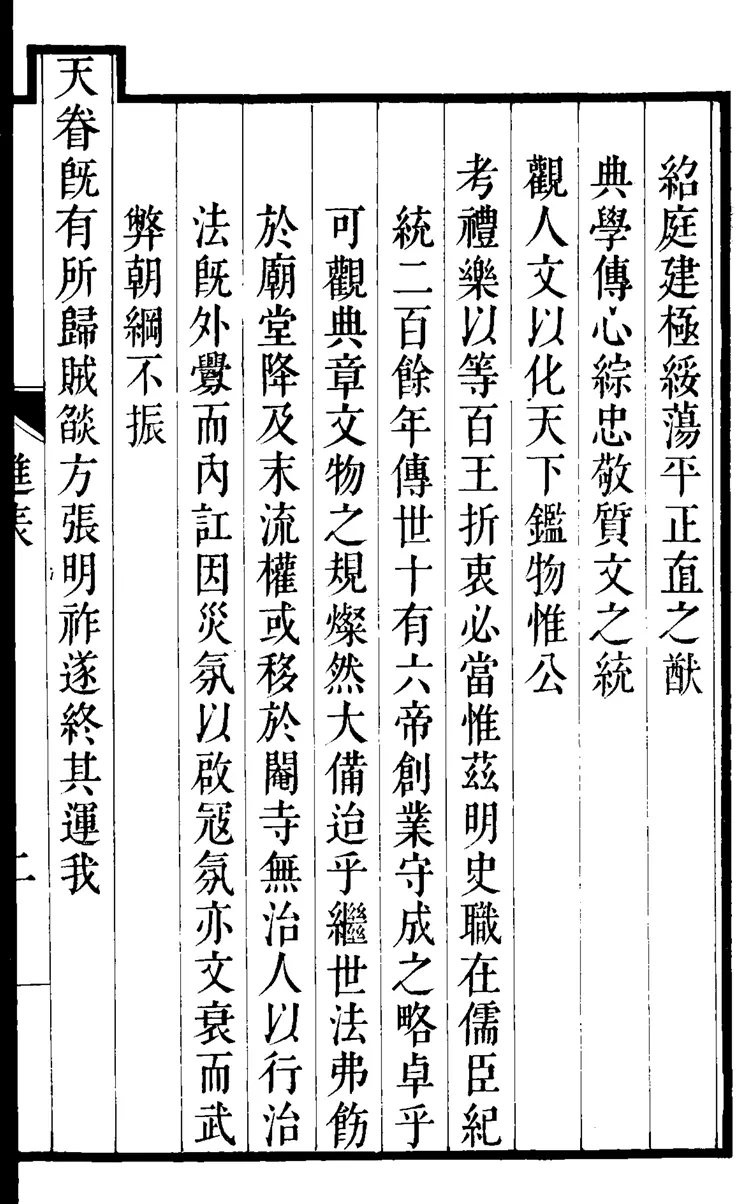 紹庭建極綏蕩平正直之猷
典學傳心綜忠敬質文之統
觀人文以化天下鑑物惟公
考禮樂以等百王折衷必當惟茲明史職在儒臣紀
統二百餘年傳世十有六帝創業守成之略卓乎
可觀典章文物之規燦然大備迨乎繼世法弗飭
於廟堂降及末流權或移於閹寺無治人以行治
法旣外釁而內訌因災氛以啟寇氛亦文衰而武
弊朝綱不振
天眷旣有所歸賊燄方張明祚遂終其運我
進表
二